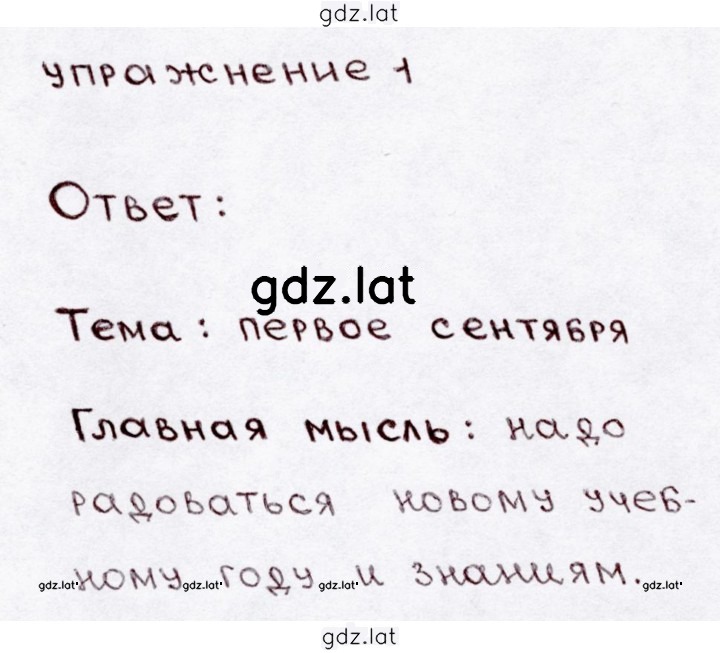 gdz.lat
упражнение 1
Ответ:
gdz.lat
Тема: первое сентября
Главная мысль: надо
радоваться новому учеб-
gdz.lat ному gdz.lat году gdz.lat и знаниям. gdz.lat
gdz.lat